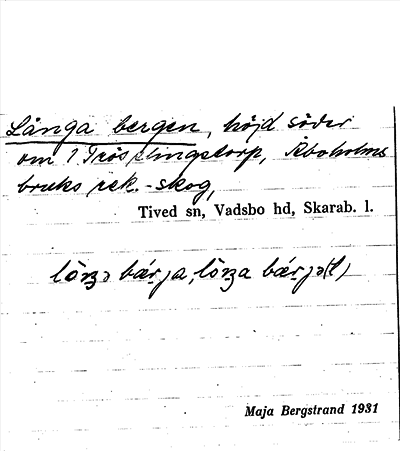 Långa bergen, höjd söder
om 1 Tröslingstorp, Åboholms
bruks rek.-skog,
Tived sn, Vadsbo hd, Skarab. l.
bærja, bærjə(t)
Maja Bergstrand 1931